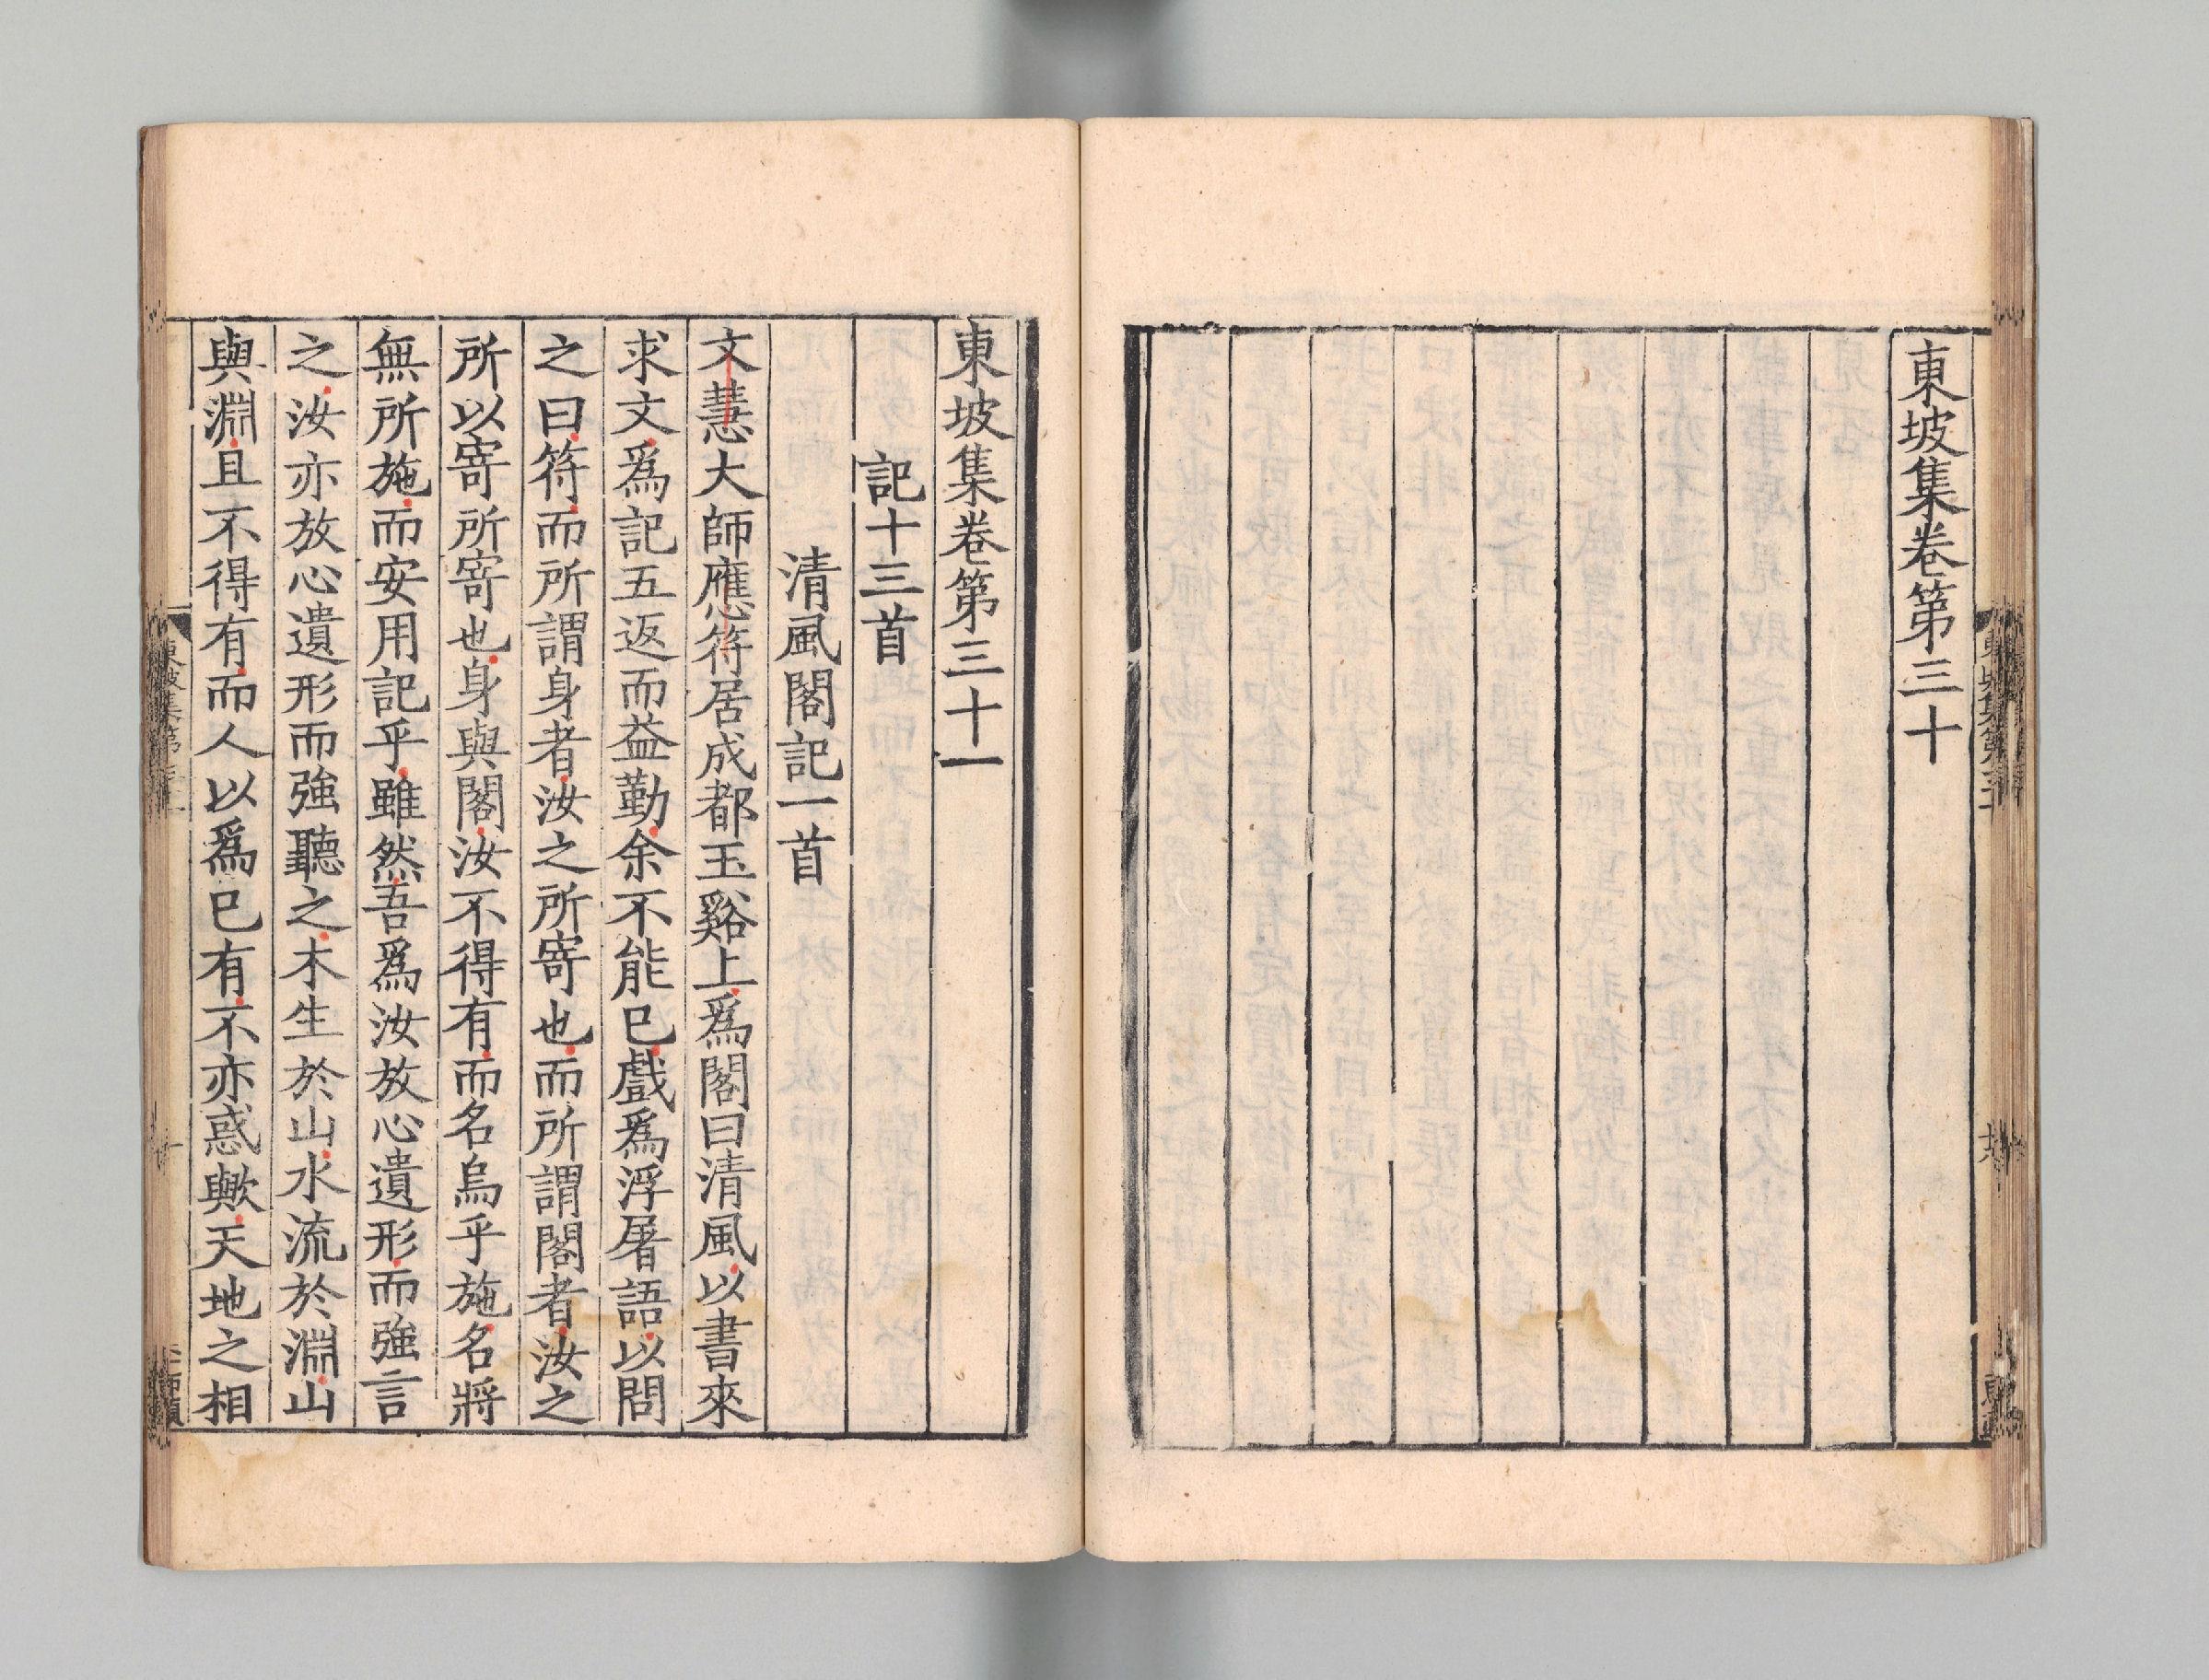 東坡集卷第三十
東坡集卷第三十一
記十三首
清風閣記一首
文慧大師應符居成都玉谿上爲閣曰清風以書來
求文爲記五返而益勤余不能已戲爲浮屠語以問
之曰符而所謂身者汝之所寄也而所謂閣者汝之
所以寄所寄也身與閣汝不得有而名烏乎施名將
無所施而安用記乎雖然吾爲汝放心遺形而強言
之汝亦放心遺形而強聽之木生於山水流於淵山
與淵且不得有而人以爲已有不亦惑歟天地之相